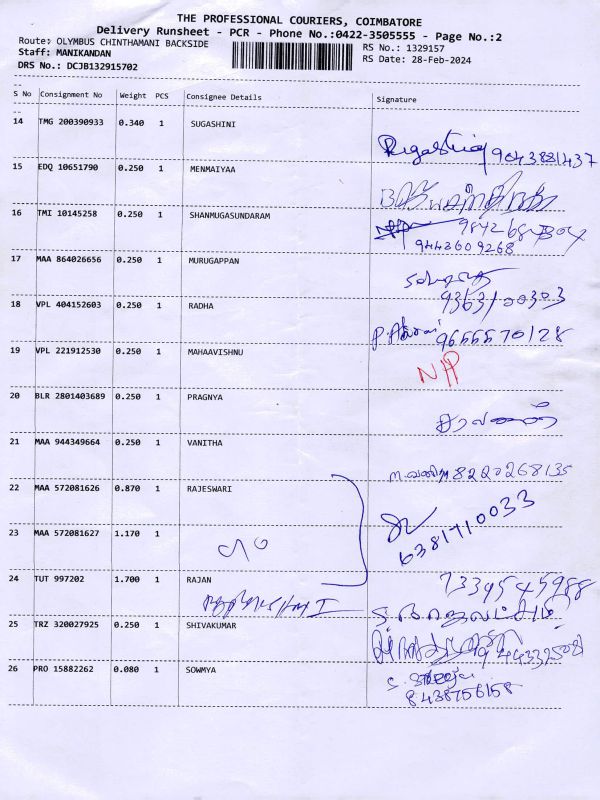 THE PROFESSIONAL COURIERS, COIMBATORE
Delivery Runsheet - PCR - Phone No.:0422-3505555 - Page No.:2
Route: OLYMBUS CHINTHAMANI BACKSIDE
RS No.: 1329157
Staff: MANIKANDAN
RS Date: 28-Feb-2024
DRS No.: DCJB132915702
S No Consignment No Weight PCS Consignee Details Signature
14 TMG 200390933 0.340 1 SUGASHINI
9843881437
15 EDQ 10651790 0.250 1 MENMAIYAA
16 TMI 10145258 0.250 1 SHANMUGASUNDARAM
9443609268
17 MAA 864026656 0.250 1 MURUGAPPAN
9363100303
18 VPL 404152603 0.250 1 RADHA
9655570128
19 VPL 221912530 0.250 1 MAHAAVISHNU
N/P
20 BLR 2801403689 0.250 1 PRAGNYA
21 MAA 944349664 0.250 1 VANITHA
8220268135
22 MAA 572081626 0.870 1 RAJESWARI
6381710033
23 MAA 572081627 1.170 1
24 TUT 997202 1.700 1 RAJAN
7339545988
25 TRZ 320027925 0.250 1 SHIVAKUMAR
26 PRO 15882262 0.080 1 SOWMYA
8438756158